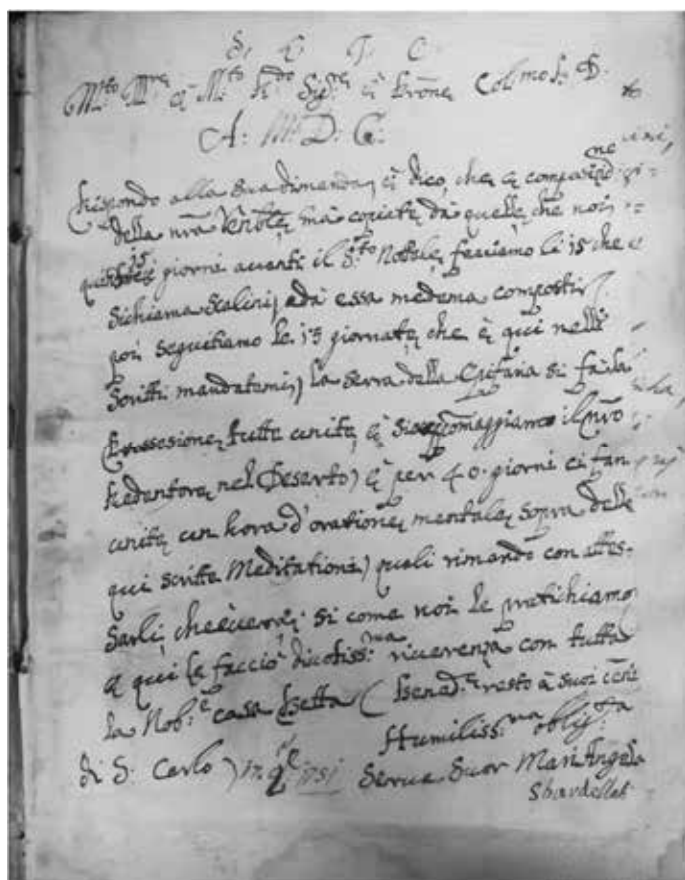 S. E T. C
M.to Ill.re e M.to R.do Sig.re e Prone Col.mo
A: M: D: G:
Rispondo alla sua dimanda, e dico, che e compositione
della nra Venble, ma copiate da quelle, che noi
15 giorni avanti il S.to Natale, facciamo li 15 che
si chiama Scalini, e da essa medema composti
poi seguitiamo le 15 giornate, che e qui nelli
Scritti mandatemi, la serra della Epifania si fa la
Processione, tutte unite, e si accompaggiamo il nro
Redentore, nel Deserto, e per 40. giorni ci fan
unite un hora d'oratione, mentale, sopra delle
qui scritte Meditationi, quali rimando con attes-
sarli, che è vera, si come noi le pratichiamo
e qui le faccio divotiss.ma riverenza con tutta
la Nob.e casa Benad.e resto à suoi
Humiliss.ma oblig.ta
di S. Carlo 17 1751 Serva Suor Mari Angela
Sbardellat